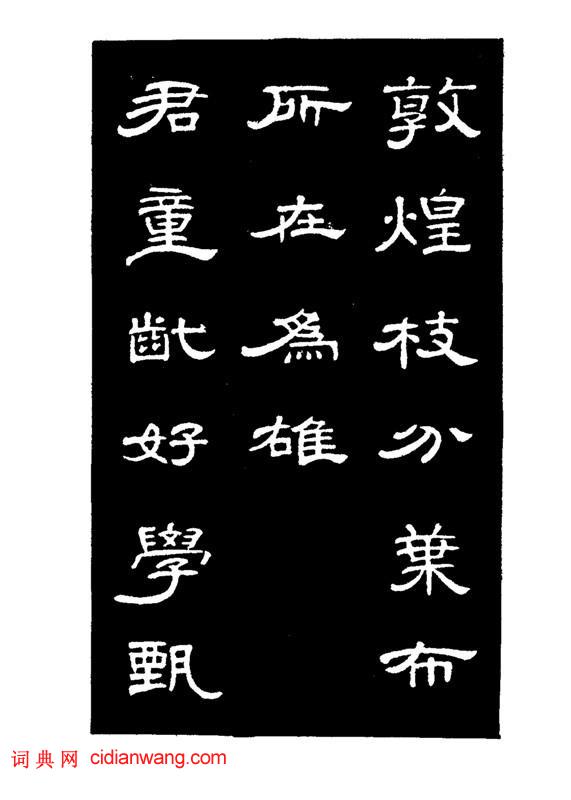 敦煌枝分葉布
所在為雄
君童齔好學甄
词典网 cidianwang.com